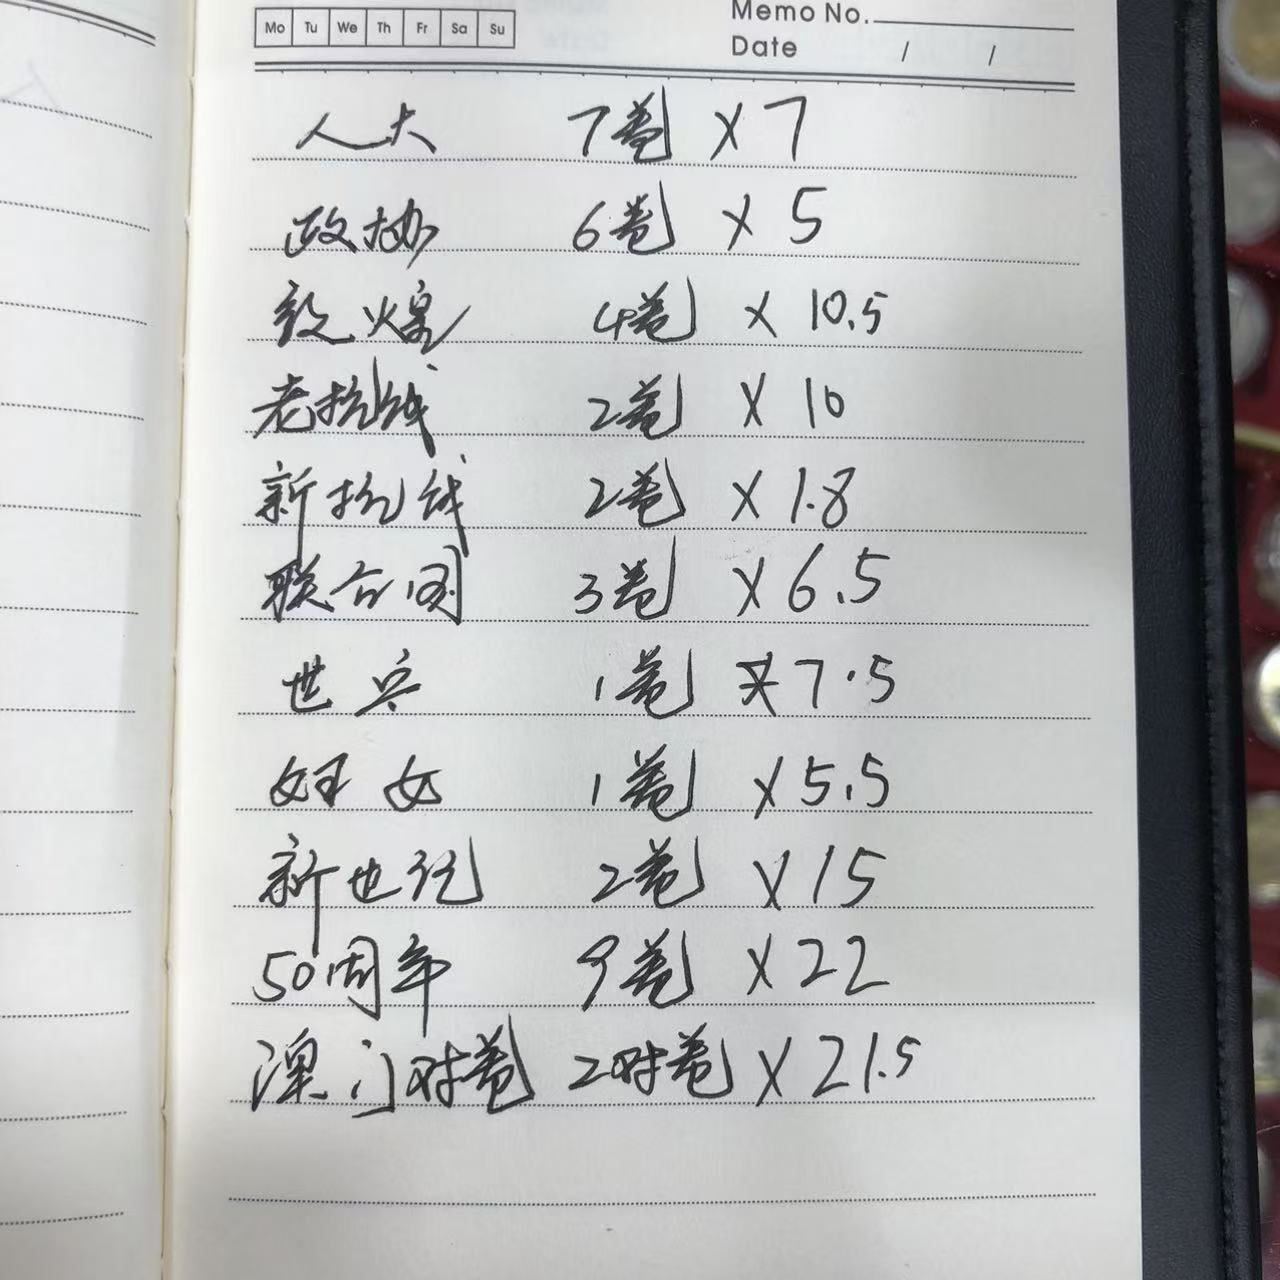 Mo Tu We Th Fr Sa Su
Memo No.
Date / /
人大 7卷 X 7
政协 6卷 X 5
敦煌 4卷 X 10.5
老抗战 2卷 X 10
新抗战 2卷 X 1.8
联合国 3卷 X 6.5
世乒 1卷 X 7.5
妇女 1卷 X 5.5
新世纪 2卷 X 15
50周年 9卷 X 22
澳门对卷 2对卷 X 21.5